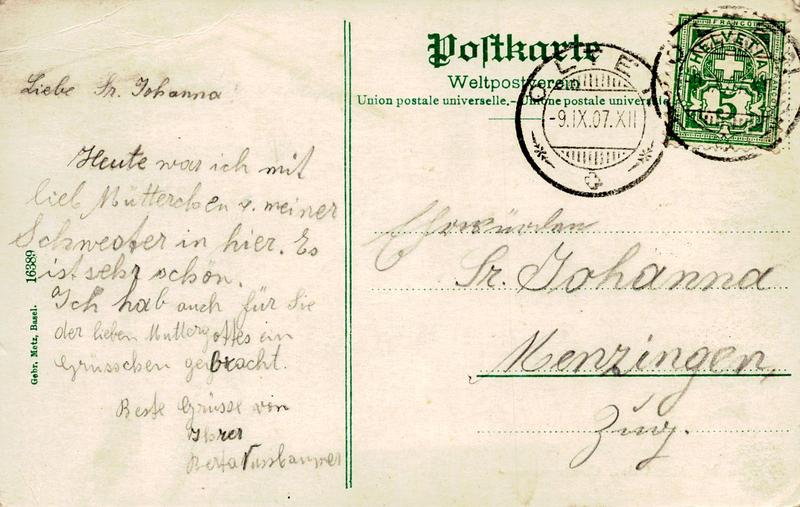 Liebe Sr. Johanna
Heute war ich mit
lieb Mütterchen u. meiner
Schwester in hier. Es
ist sehr schön.
Ich hab auch für Sie
der lieben Muttergottes ein
Grüsschen gebracht.
Beste Grüsse von
Ihrer
Berta Nussbaumer
Gebr. Metz, Basel. 16389
Postkarte
Weltpostverein
Union postale universelle. – Unione postale universale
-9.IX.07.XII
FRANCO
HELVETIA
5
Ehrwürden
Sr. Johanna
Menzingen,
Zug.